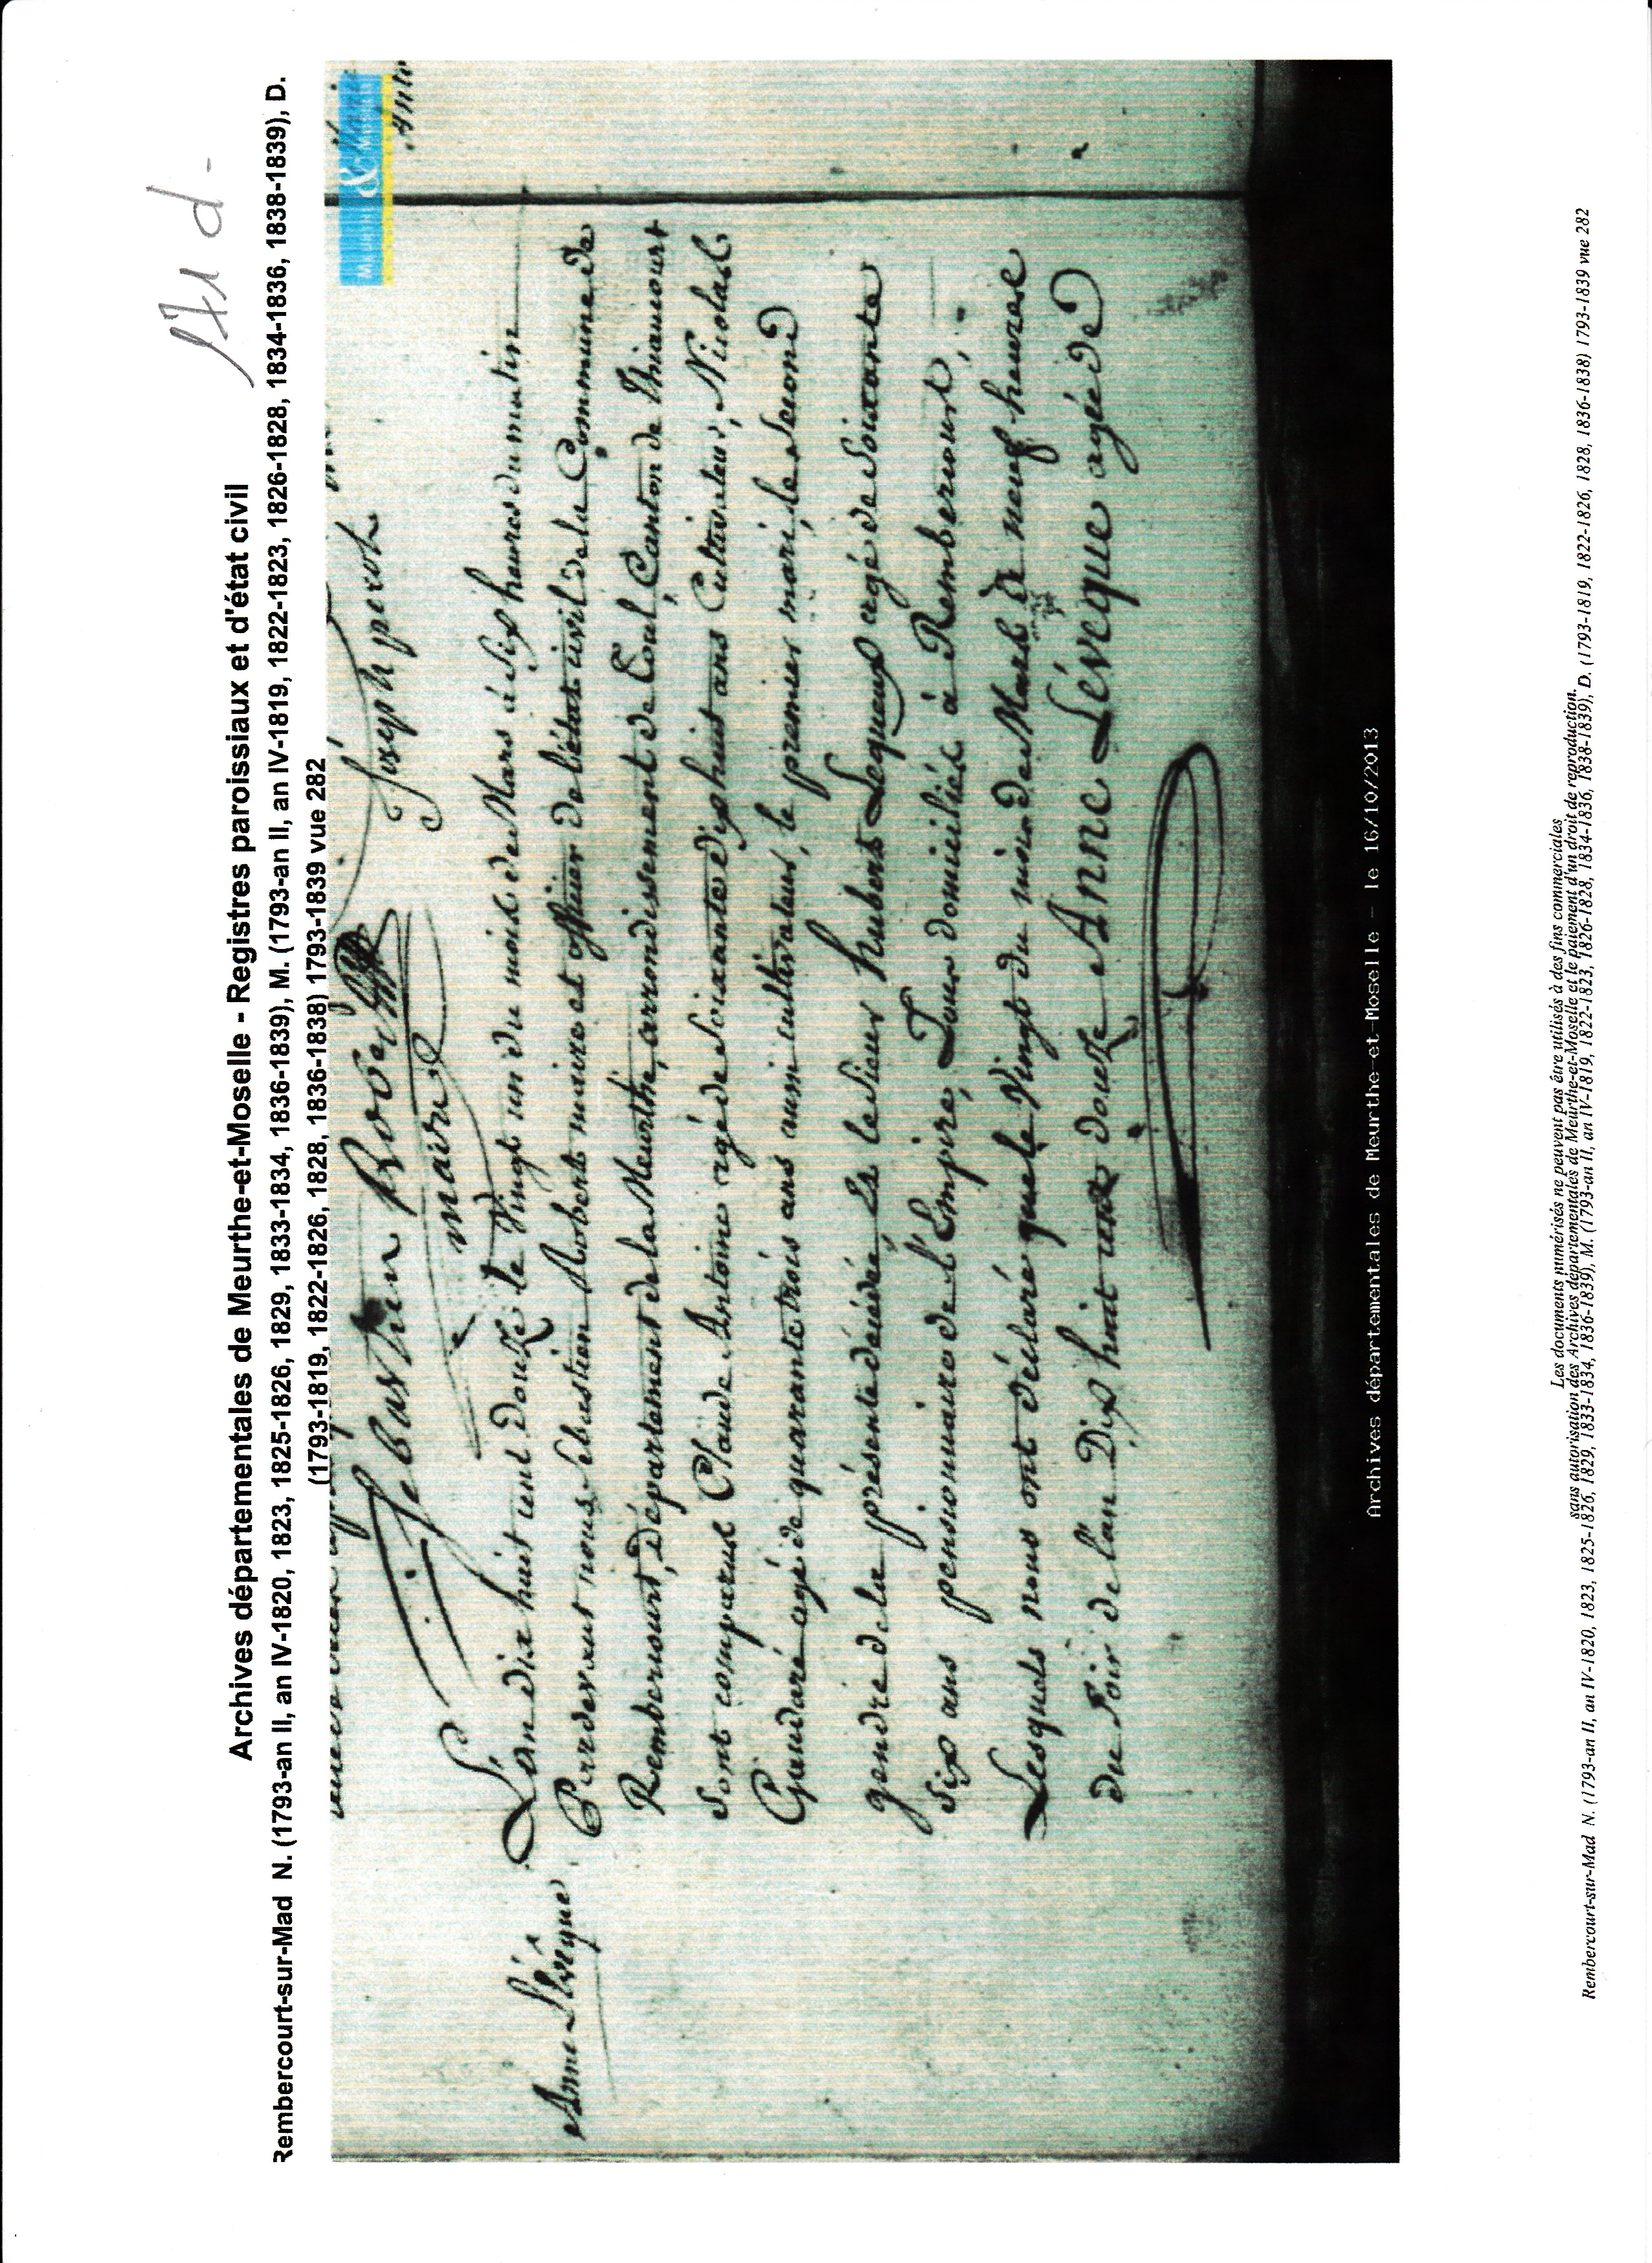 171 d -
Archives départementales de Meurthe-et-Moselle - Registres paroissiaux et d'état civil
Rembercourt-sur-Mad N. (1793-an II, an IV-1820, 1823, 1825-1826, 1829, 1833-1834, 1836-1839), M. (1793-an II, an IV-1819, 1822-1823, 1826-1828, 1834-1836, 1838-1839), D.
(1793-1819, 1822-1826, 1828, 1836-1838) 1793-1839 vue 282
MEURTHE & MOSELLE
Sebastien Robert
Joseph perot
maire
Anne Lévêque
L'an dix huit cent douze le Vingt un du mois de Mars à dix heures du matin
Pardevant nous Sebastien Robert maire et officier de l'état civil de la Commune de
Rembercourt, Département de la Meurthe, arrondissement de Toul, Canton de Thiaucourt
Sont comparus Claude Antoine agé de Soixante dix huit ans Cultivateur, Nicolas
Gaudaré agé de quarante trois ans aussi cultivateur, le premier mari, le Second
gendre de la présente décédée, Et le Sieur hubert Lequeux agé de Soixante
Six ans pensionnaire de l'Empire, Tous domiciliés à Rembercourt,
Lesquels nous ont déclaré que le Vingt du mois de Mars de neuf heures
du Soir de l'an Dix huit cent douze Anne Lévêque agée de
Archives départementales de Meurthe-et-Moselle - le 16/10/2013
Les documents numérisés ne peuvent pas être utilisés à des fins commerciales
sans autorisation des Archives départementales de Meurthe-et-Moselle et le paiement d'un droit de reproduction.
Rembercourt-sur-Mad N. (1793-an II, an IV-1820, 1823, 1825-1826, 1829, 1833-1834, 1836-1839), M. (1793-an II, an IV-1819, 1822-1823, 1826-1828, 1834-1836, 1838-1839), D. (1793-1819, 1822-1826, 1828, 1836-1838) 1793-1839 vue 282